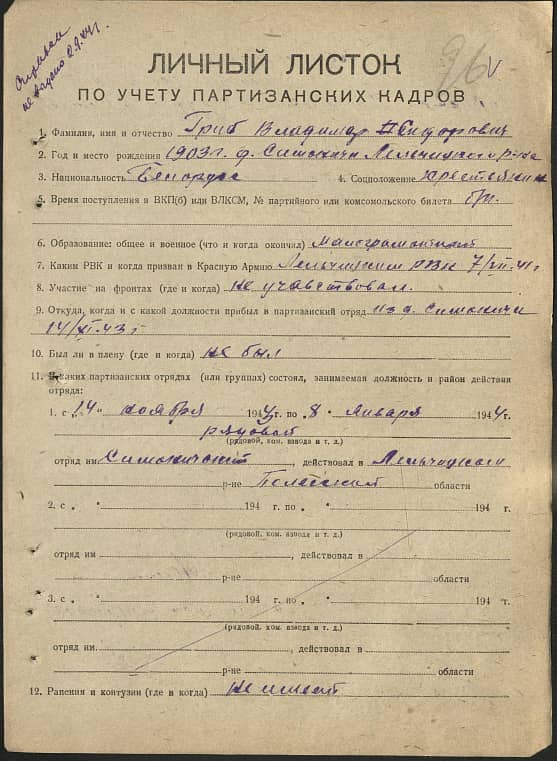 не выдано 2.9.44г.
96 v
ЛИЧНЫЙ ЛИСТОК
ПО УЧЕТУ ПАРТИЗАНСКИХ КАДРОВ
1. Фамилия, имя и отчество Гриб Владимир
2. Год и место рождения 1903г. д. Симоничи Лельчицкого р-на
3. Национальность белорус 4. Соцположение крестьянин
5. Время поступления в ВКП(б) или ВЛКСМ, № партийного или комсомольского билета б/п.
6. Образование: общее и военное (что и когда окончил) малограмотный
7. Каким РВК и когда призван в Красную Армию Лельчицким РВК 7/VII.41г
8. Участие на фронтах (где и когда) не участвовал.
9. Откуда, когда и с какой должности прибыл в партизанский отряд из д. Симоничи
14/XI.43г
10. Был ли в плену (где и когда) не был
11. В каких партизанских отрядах (или группах) состоял, занимаемая должность и район действия
отряда:
1. с „14" ноября 1943г. по „8" января 1944г.
рядовой
(рядовой, ком. взвода и т. д.)
отряд им. Симоничский, действовал в Лельчицком
р-не Полесской области
2. с „ " 194 г. по „ " 194 г.
(рядовой, ком. взвода и т. д.)
отряд им , действовал в
р-не области
3. с „ " 194 г. по „ " 194 г.
(рядовой, ком. взвода и т. д.)
отряд им. , действовал в
р-не области
12. Ранения и контузии (где и когда) не имеет